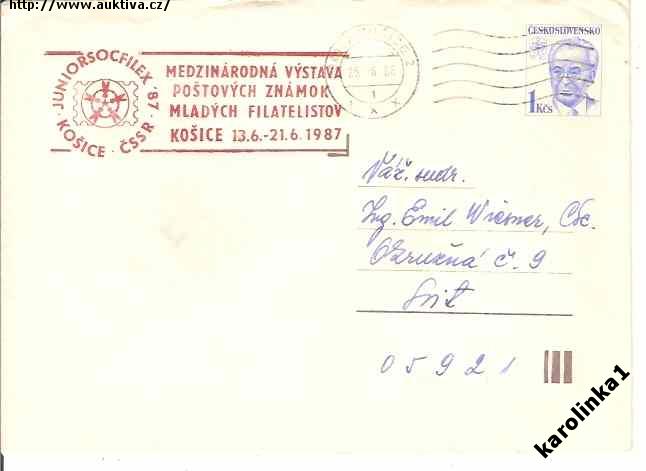 http://www.auktiva.cz/
JUNIORSOCFILEX '87
KOŠICE · ČSSR ·
MEDZINÁRODNÁ VÝSTAVA
POŠTOVÝCH ZNÁMOK
MLADÝCH FILATELISTOV
KOŠICE 13.6.-21.6.1987
ČESKOSLOVENSKO
1 Kčs
Váž. sudr.
Ing. Emil Wiesner, CSc.
Okružná č. 9
Svit
05921
karolinka1